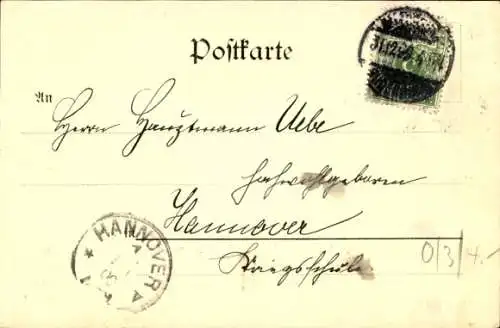 Postkarte
31.12.9
An
Herrn Hauptmann Uebe
Hochwohlgeboren
Hannover
* HANNOVER *
Kriegsschule.
0/3/4.-